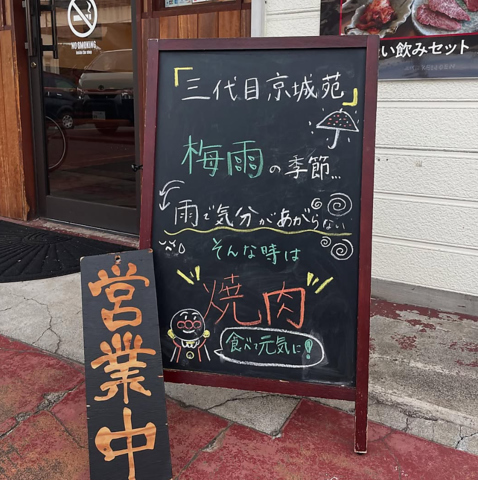 NO SMOKING
い飲みセット
「三代目京城苑」
梅雨の季節...
雨で気分があがらない
そんな時は
焼肉
食べて元気に!
営業中